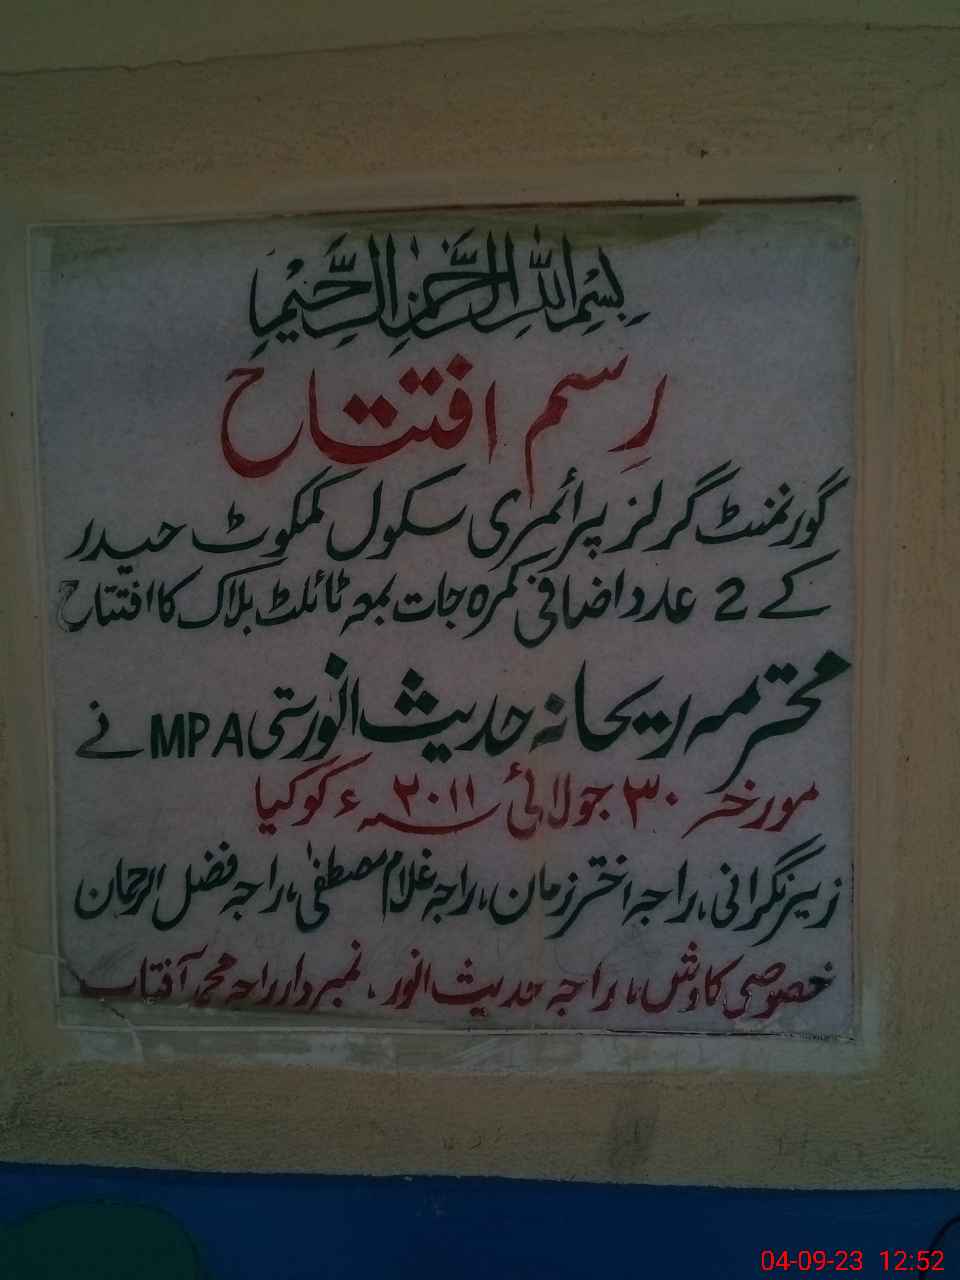 بِسْمِ اللّٰہِ الرَّحْمٰنِ الرَّحِیْمِ
رسم افتتاح
گورنمنٹ گرلز پرائمری سکول کمکوٹ حیدر
کے 2 عدد اضافی کمرہ جات بمعہ ٹائلٹ بلاک کا افتتاح
محترمہ ریحانہ حدیث انور ستی MPA نے
مورخہ ۳۰ جولائی ۲۰۱۱ء کو کیا
زیر نگرانی، راجہ اختر زمان، راجہ غلام مصطفٰی، راجہ فضل الرحمان
خصوصی کاوش، راجہ حدیث انور، نمبردار راجہ محمد آفتاب
04-09-23 12:52